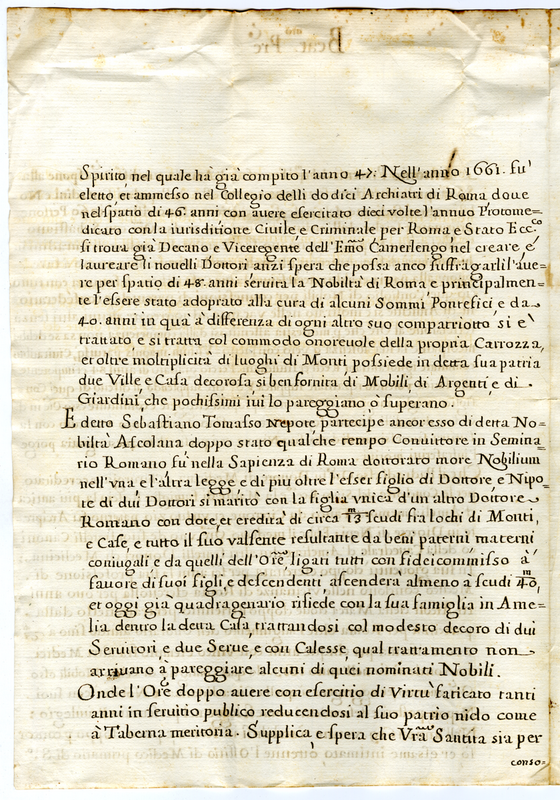 Spirito nel quale ha già compito l'anno 47: Nell'anno 1661. fu'
eletto, et ammesso nel Collegio delli dodici Archiatri di Roma doue
nel spatio di 46. anni con auere esercitato dieci volte l'annuo Protome=
dicato con la iurisditione Ciuile, e Criminale per Roma e Stato Ecc.co
si troua già Decano e Viceregente dell'Em̃o Camerlengo nel creare, é
laureare li nouelli Dottori anzi spera che possa anco suffragarli l'aue=
re per spatio di 48. anni seruita la Nobiltà di Roma e principalmen=
te l'essere stato adoprato alla cura di alcuni Sommi Pontefici, e da
40. anni in quà à differenza di ogni altro suo compatriotto si è
trattato, e si tratta col commodo onoreuole della propria Carrozza,
et oltre moltiplicità di luoghi di Monti possiede in detta sua patria
due Ville, e Casa decorosa si ben fornita di Mobili, di Argenti, e di
Giardini, che pochissimi iui lo pareggiano ò superano.
E detto Sebastiano Tomasso Nepote partecipe ancor esso di detta No=
biltà Ascolana doppo stato qualche tempo Conuittore in Semina=
rio Romano fù nella Sapienza di Roma dottorato more Nobilium
nell'vna, e l'altra legge e di piu oltre l'esser figlio di Dottore, e Nipo=
te di dui Dottori si maritò con la figlia vnica d'un altro Dottore
Romano con dote, et eredità di circa 13 m scudi fra lochi di Monti,
e Case, e tutto il suo valsente resultante da beni paterni materni
coniugali e da quelli dell'Ore ligati tutti con fideicommisso à
fauore di suoi figli, e descendenti ascenderà almeno à scudi 40 m,
et oggi già quadragenario risiede con la sua famiglia in Ame=
lia dentro la detta Casa, trattandosi col modesto decoro di dui
Seruitori, e due Serue, e con Calesse, qual trattamento non
arriuano à pareggiare alcuni di quei nominati Nobili.
Onde l'Ore doppo auere con esercitio di Virtù faticato tanti
anni in seruitio publico reducendosi al suo patrio nido come
à Taberna meritoria. Supplica, e spera che Vrã Santità sia per
conso=